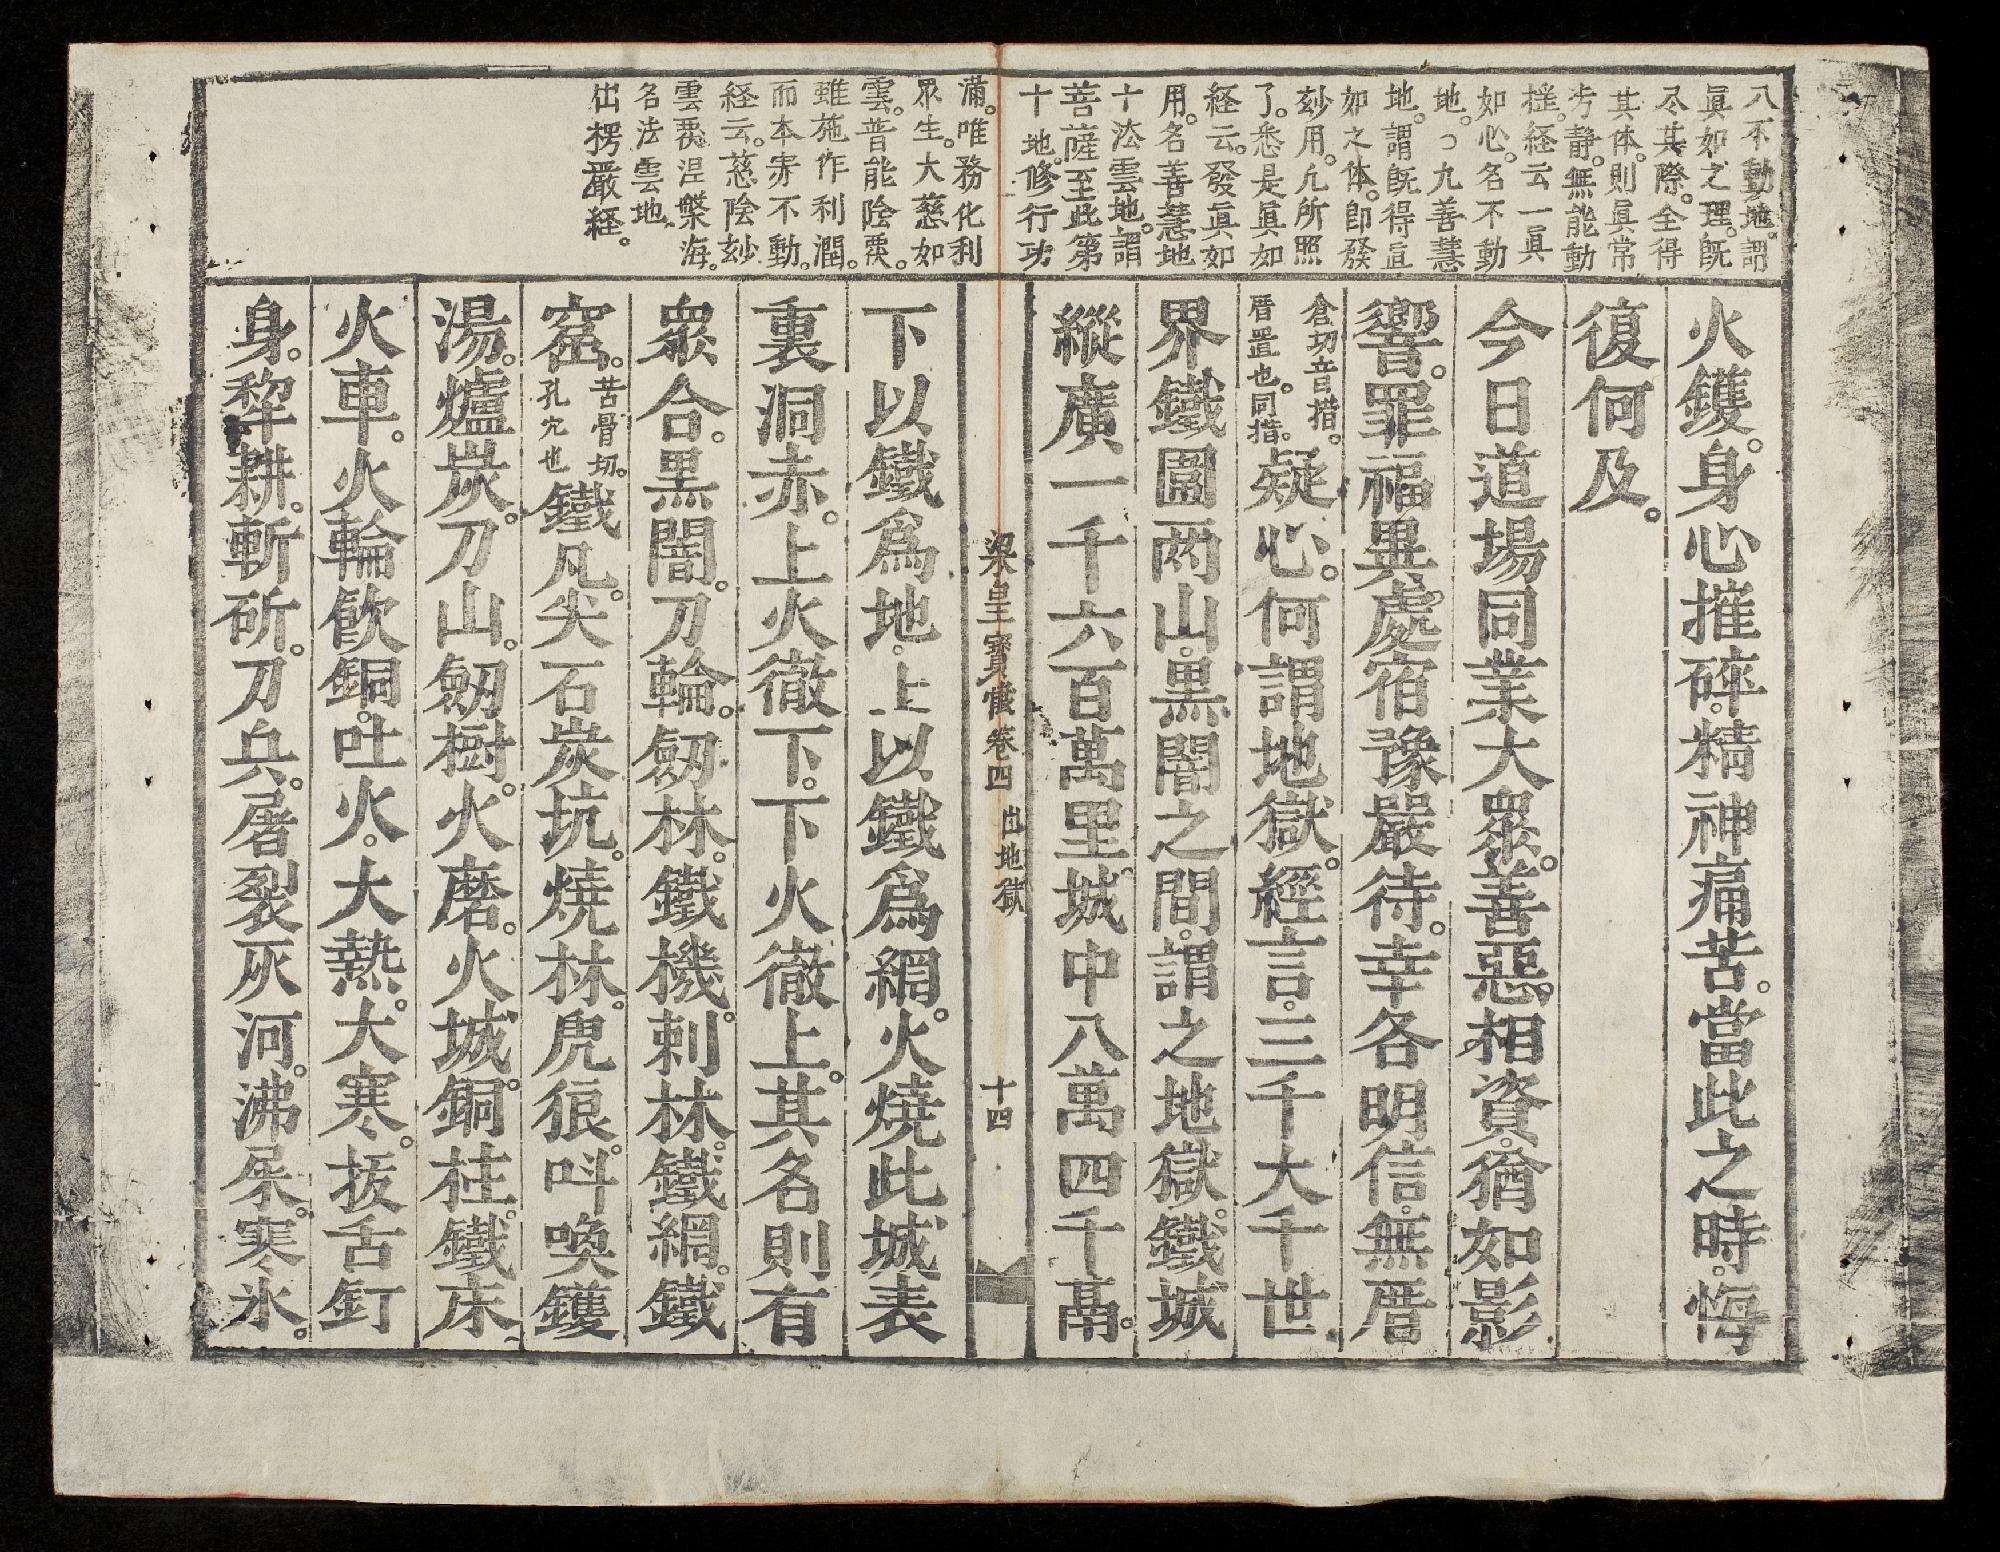 八不動地。謂
眞如之理。旣
尽其際。全得
其体。則眞常
湛静。無能動
揺。経云一眞
如心。名不動
地。九善慧
地。謂旣得眞
如之体。卽發
玅用。凢所照
了。悉是眞如
経云。發眞如
用。名善慧地
十法雲地。謂
菩薩至此第
十地。修行功
滿。唯務化利
眾生。大慈如
雲。普能陰覆。
雖施作利潤。
而本寂不動。
経云。慈陰玅
雲覆涅槃海。
名法雲地
出楞嚴経。
火鑊。身心摧碎。精神痛苦。當此之時。悔
復何及。
今日道場同業大眾。善惡相資。猶如影
響。罪福異處。宿豫嚴待。幸各明信。無厝
倉切音措。
厝置也。同措。
疑心。何謂地獄。經言。三千大千世
界鐵圍两山。黒闇之間。謂之地獄。鐵城
縱廣一千六百萬里。城中八萬四千鬲。
梁皇寶懺 卷四 出地獄 十四
下以鐵爲地。上以鐵爲網。火燒此城表
裏洞赤。上火徹下。下火徹上。其名則有
眾合。黒闇。刀輪。劒林。鐵機。刺林。鐵網。鐵
窟。
苦骨切。
孔穴也
鐵凡。尖石。炭坑。燒林。虎狼。呌喚。鑊
湯。爐炭。刀山。劒樹。火磨。火城。銅柱。鐵床
火車。火輪飮銅。吐火。大熱。大寒。拔舌釘
身。犂耕。斬斫。刀兵。屠裂灰河。沸屎。寒氷。